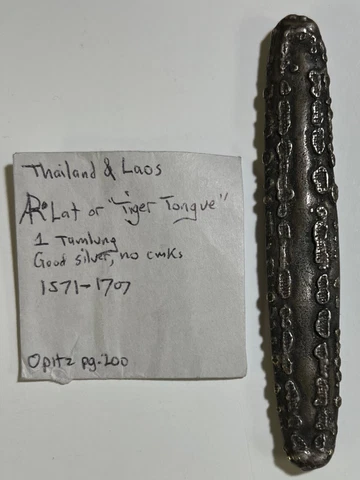 Thailand & Laos
AR Lat or "Tiger Tongue"
1 Tamlung
Good silver, no cmks
1571-1707
Opitz pg. 200